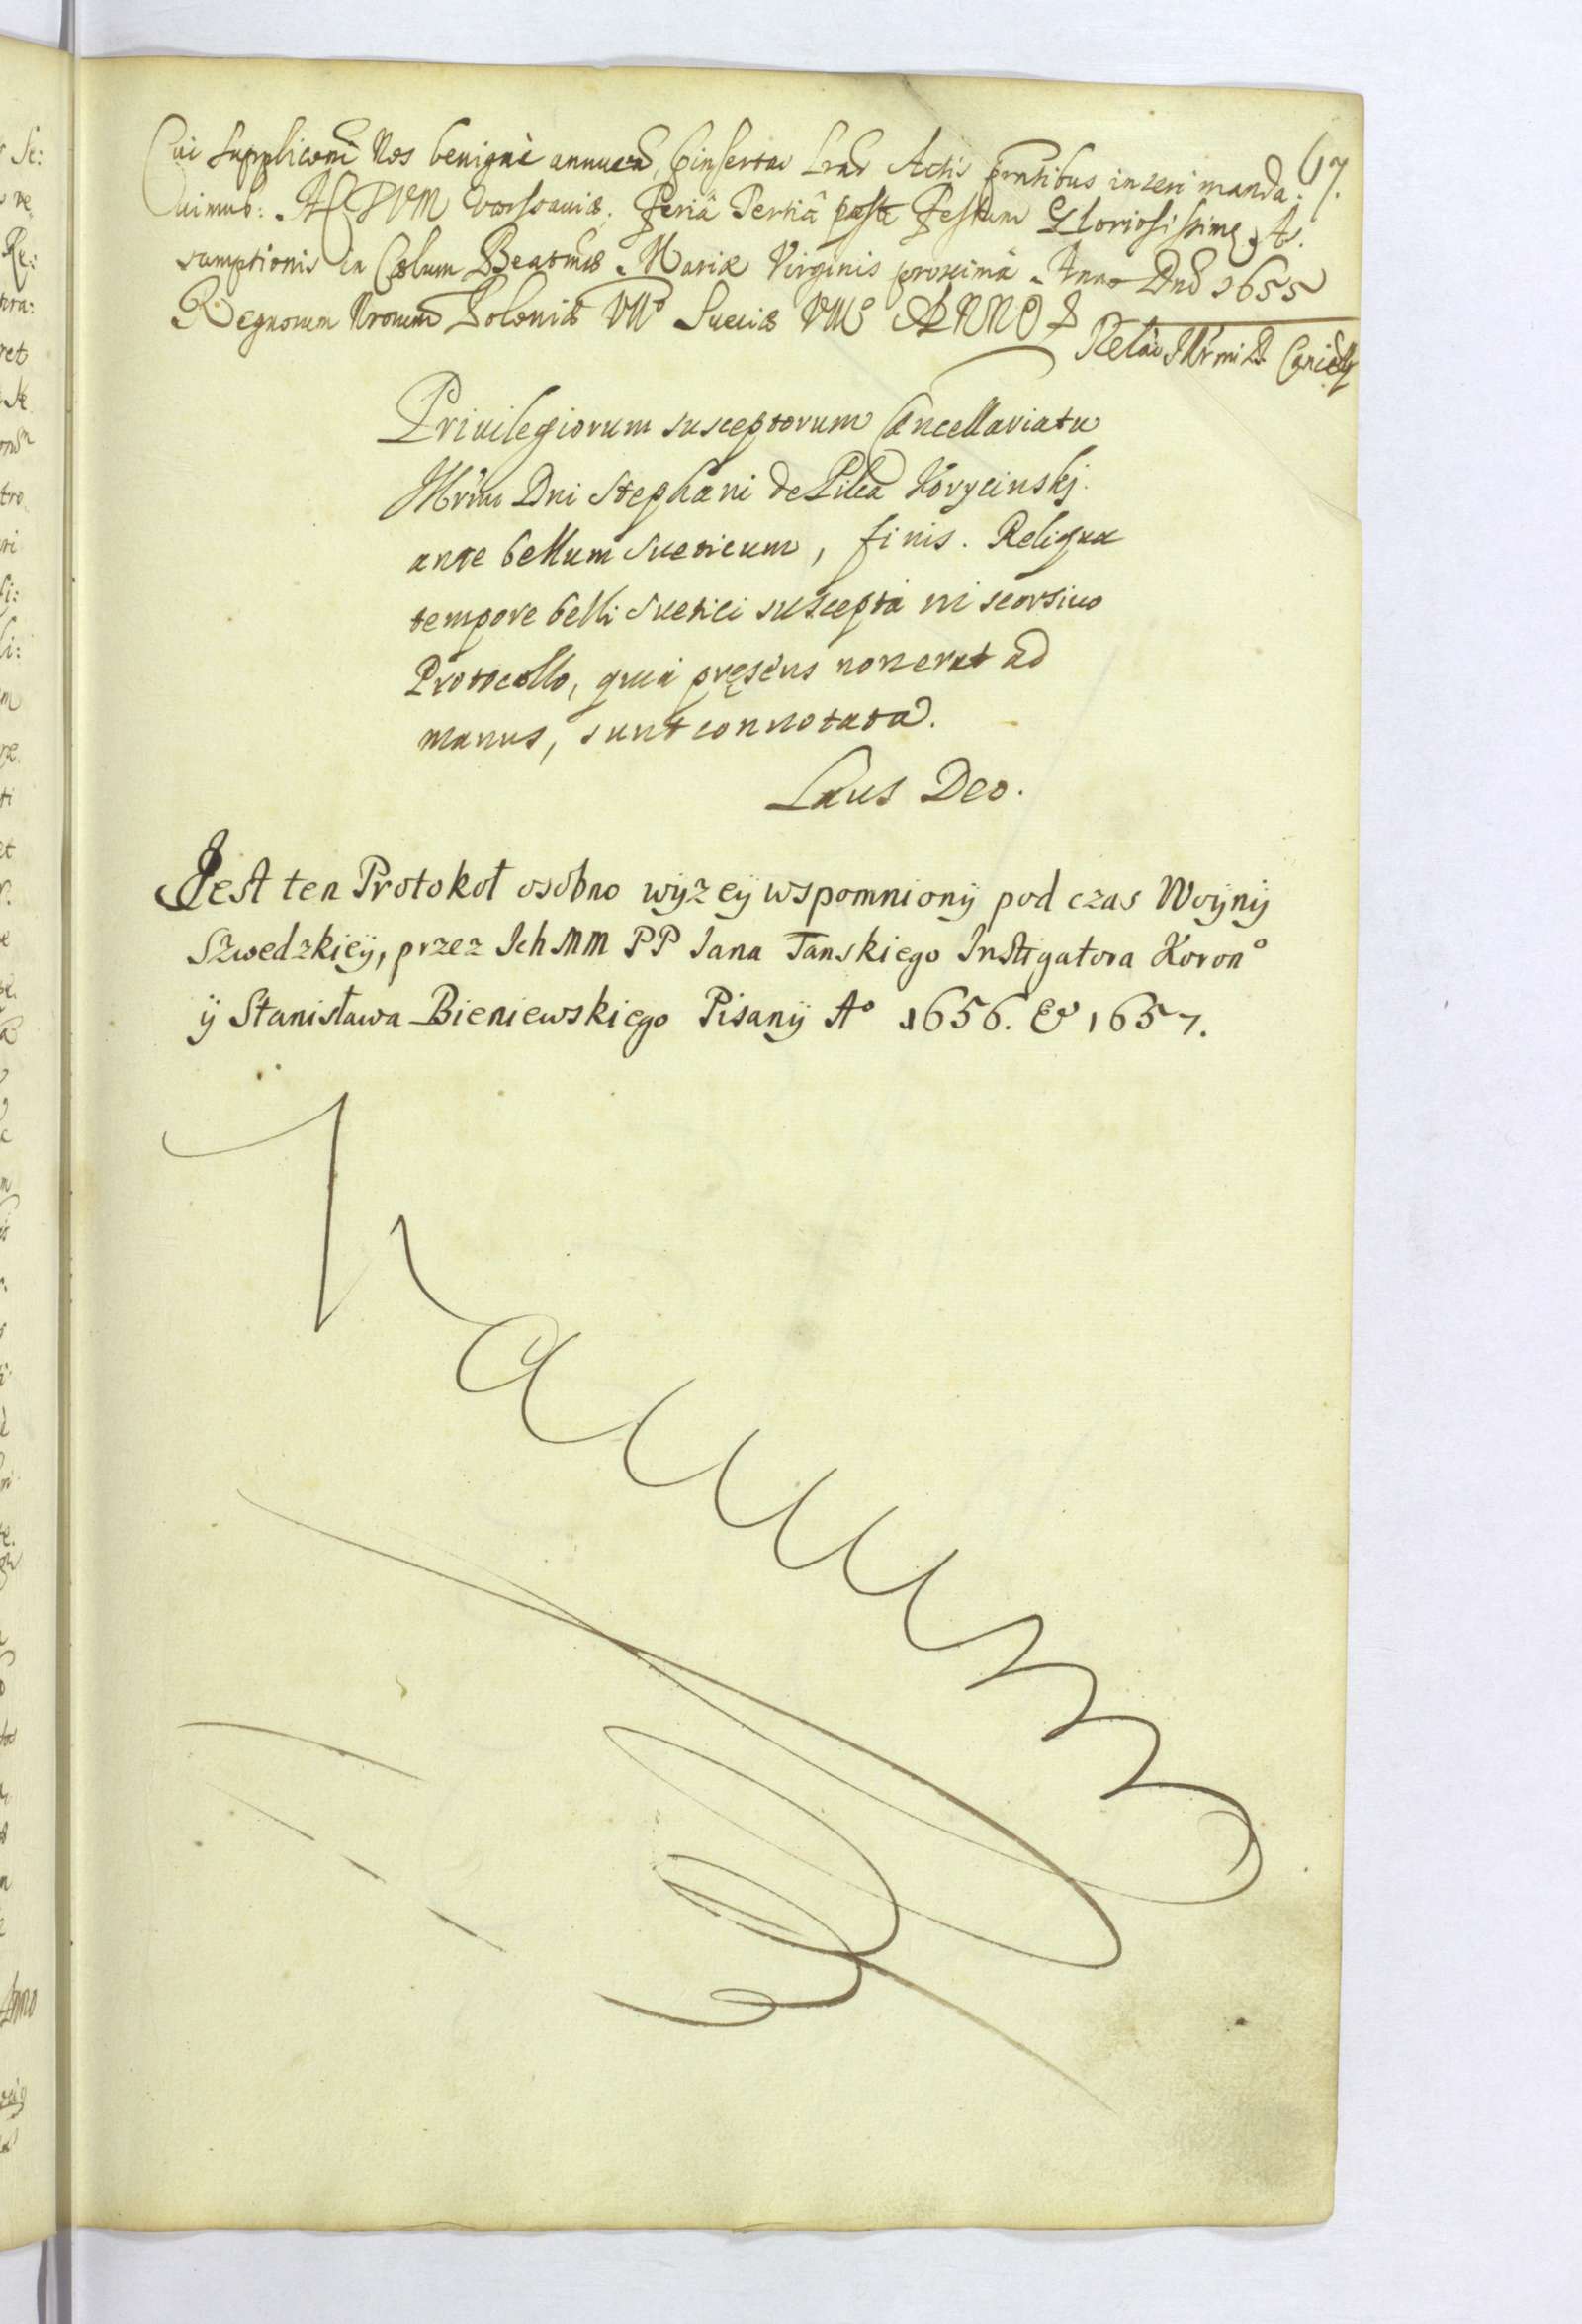 Cui suppliconi Nos benigne annuen, pinsertas Lras Actis prntibus inseri manda: 67.
vimus: ACTVM Varsaviæ. Feriâ Tertiâ post Festum Gloriosissimę As:
sumptionis in Cælum Beatmæ Mariæ Virginis proximâ Anno Dni 1655
Regnorum Nrorum Poloniæ VIIº Sueciæ VIIIº ANNO
Privilegiorum susceptorum Cancellariatu
Illrmi Dni Stephani de Pilca Korycinskj
ante bellum Sueticum, finis. Reliqua
tempore belli Suetici suscepta in seorsivo
Protocollo, quia pręsens non erat ad
manus, sunt connotata.
Laus Deo.
Jest ten Protokoł osóbno wyżeÿ wspomnionÿ pod czas Woÿnÿ
Szwedzkieÿ, przez Ich MM PP Jana Tanskiego Instigatora Koronº
ÿ Stanisława Bieniewskiego Pisanÿ Aº 1656. & 1657.